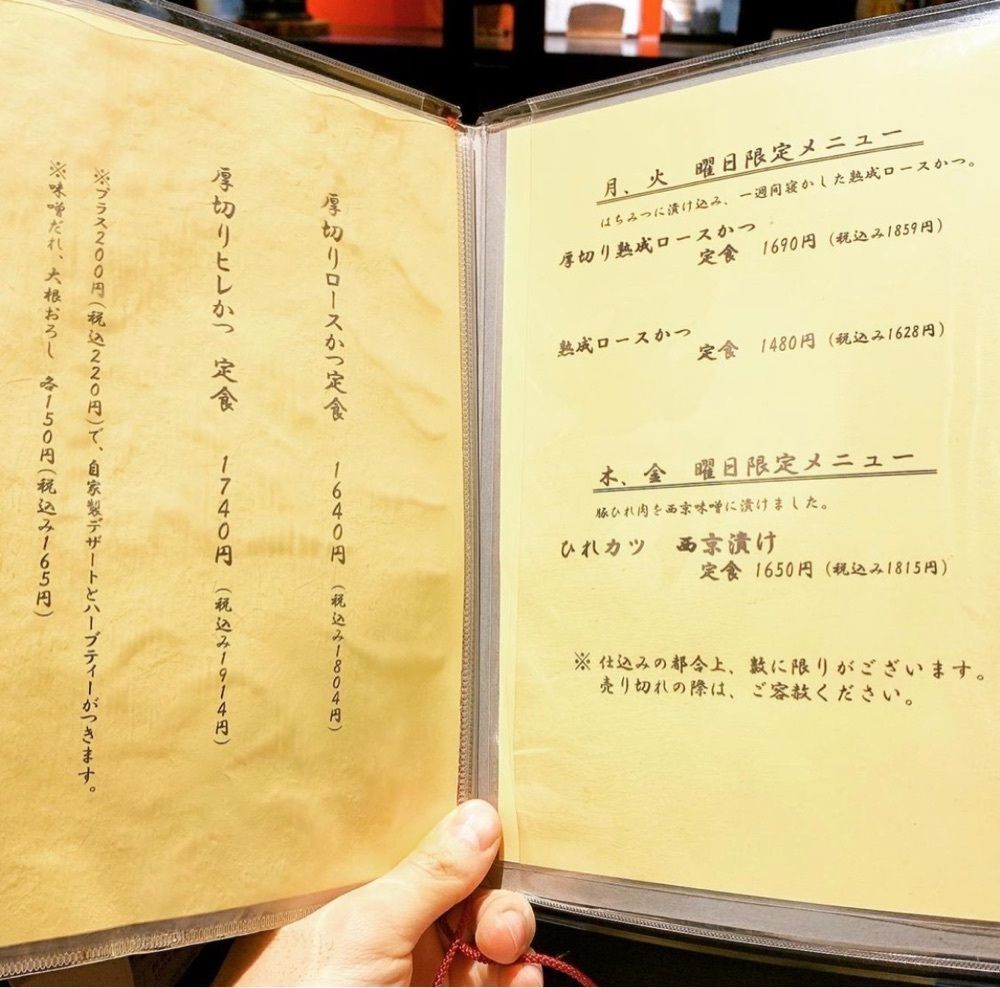 厚切りロースかつ定食 1640円(税込み1804円)
厚切りヒレかつ 定食 1740円(税込み1914円)
※プラス200円(税込220円)で、自家製デザートとハーブティーがつきます。
※味噌だれ、大根おろし 各150円(税込み165円)
月、火 曜日限定メニュー
はちみつに漬け込み、一週間寝かした熟成ロースかつ。
厚切り熟成ロースかつ
定食 1690円(税込み1859円)
熟成ロースかつ
定食 1480円(税込み1628円)
木、金 曜日限定メニュー
豚ひれ肉を西京味噌に漬けました。
ひれカツ 西京漬け
定食 1650円(税込み1815円)
※ 仕込みの都合上、数に限りがございます。
売り切れの際は、ご容赦ください。